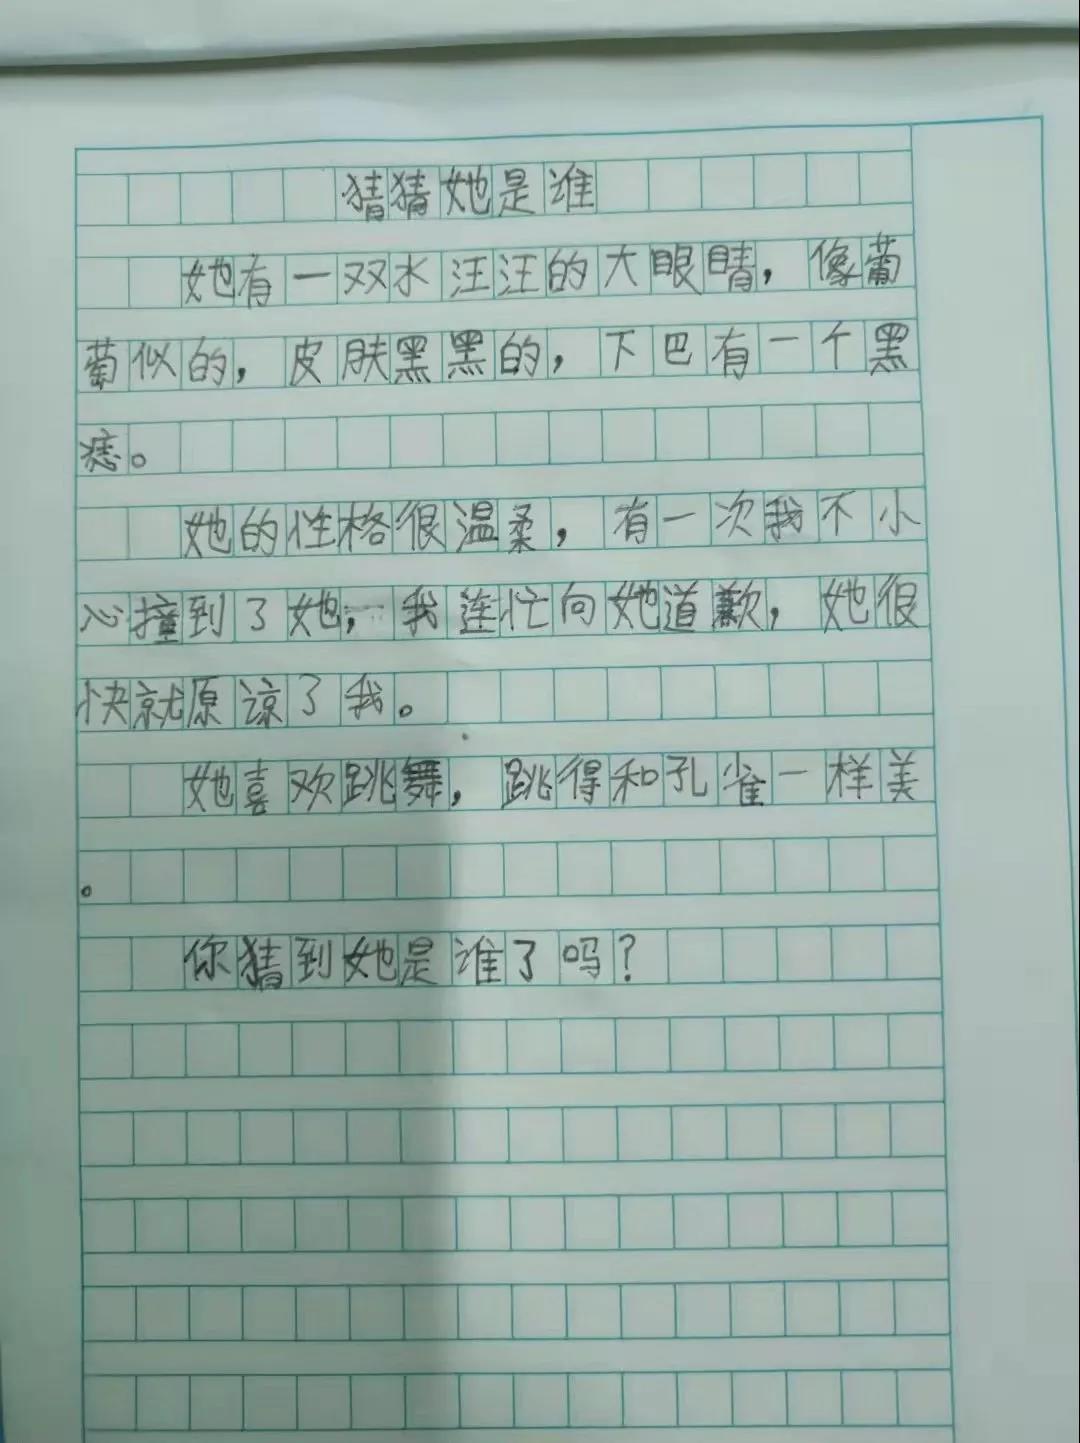 猜猜她是谁
她有一双水汪汪的大眼睛，像葡
萄似的，皮肤黑黑的，下巴有一个黑
痣。
她的性格很温柔，有一次我不小
心撞到了她，我连忙向她道歉，她很
快就原谅了我。
她喜欢跳舞，跳得和孔雀一样美
。
你猜到她是谁了吗？